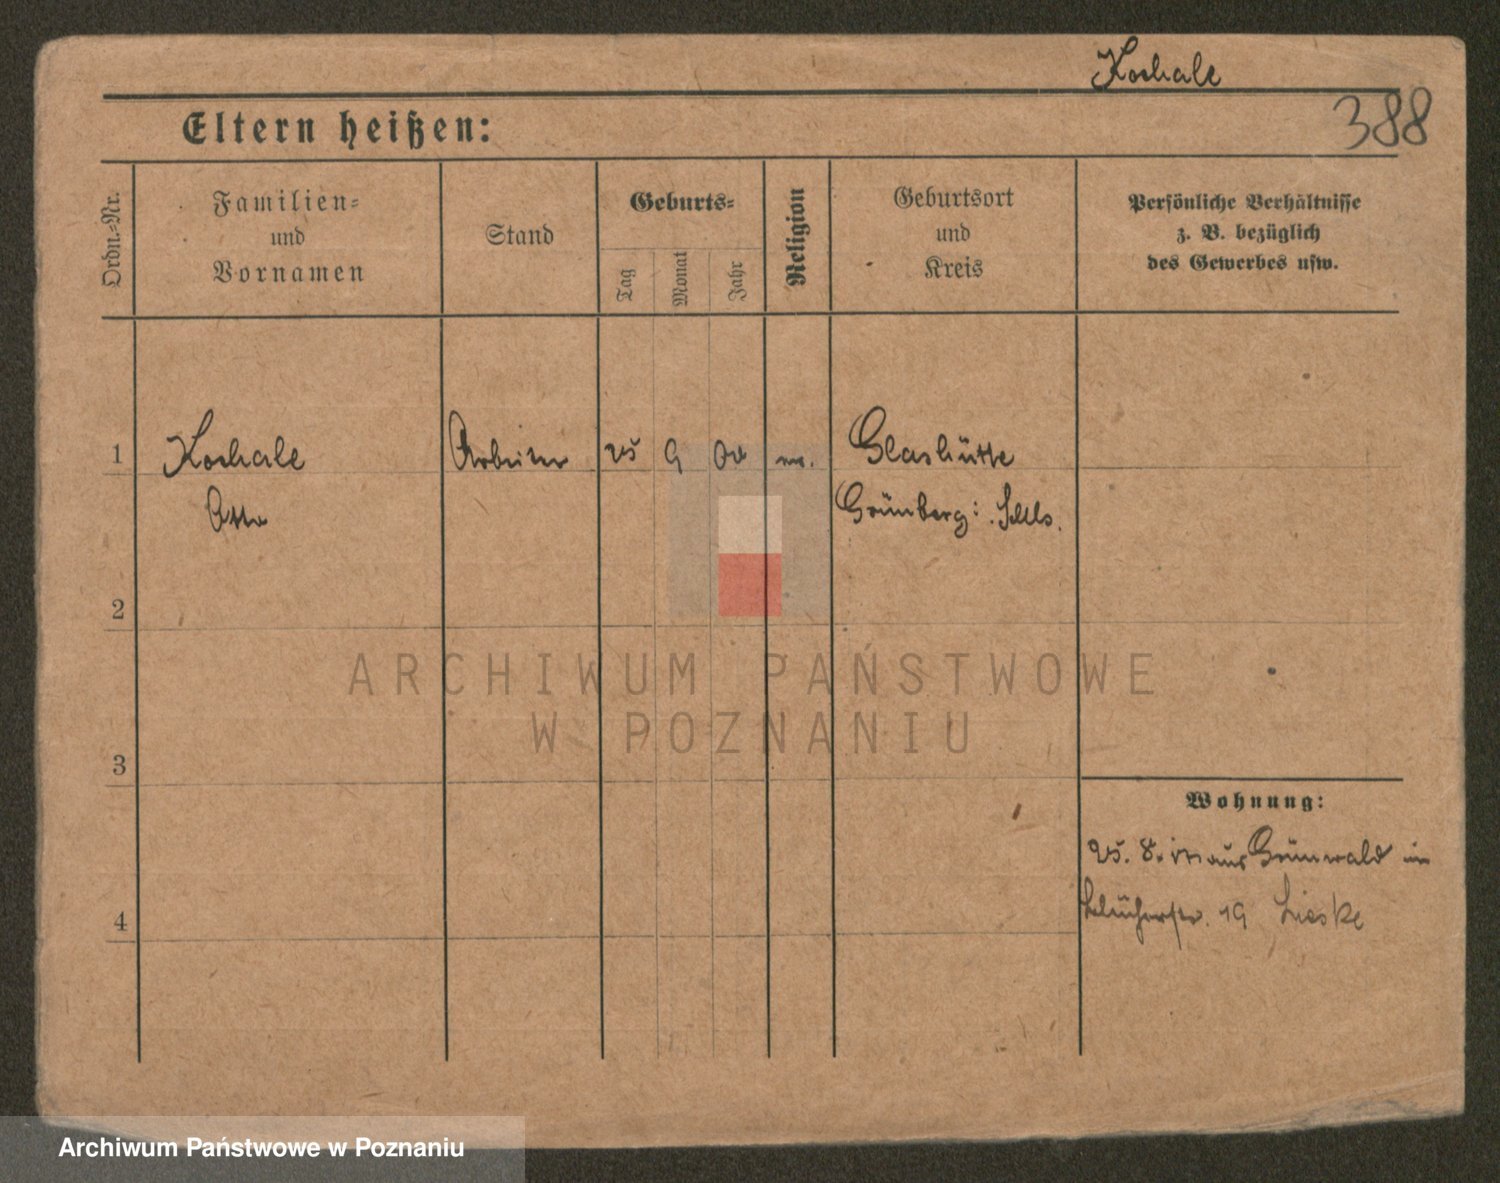 Koschale
388
Eltern heißen:
Ordn.-Nr.
Familien-
und
Vornamen
Stand
Geburts-
Tag
Monat
Jahr
Religion
Geburtsort
und
Kreis
Persönliche Verhältnisse
z. B. bezüglich
des Gewerbes usw.
1 Koschale Arbeiter 25 9 00 Glashütte
Otto Grünberg
2
ARCHIWUM PAŃSTWOWE
W POZNANIU
3
Wohnung:
25. 8. aus Grünwald in
19 Lieske
4
Archiwum Państwowe w Poznaniu